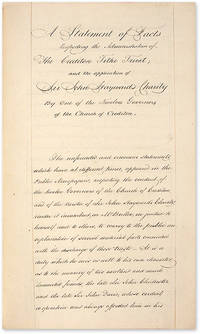 A Statement of Facts
Respecting the Administration of
The Crediton Tithe Trust,
and the application of
Sir John Haywards Charity
By One of the Twelve Governors
of the Church of Crediton.
The unfounded and erroneous statements
which have at different times, appeared in the
Public Newspapers, respecting the conduct of
the twelve Governors of the Church of Crediton
and of the trustees of Sir John Haywards Charity
render it incumbent, on in justice to
himself and to others, to convey to the public an
explanation of several material facts connected
with the discharge of their Trusts. It is a
duty which he owes as well to his own character
as to the memory of his earliest and much
lamented friends the late Sir John Chichester
and the late Sir John Davie, whose cordial
cooperation was always afforded him in his